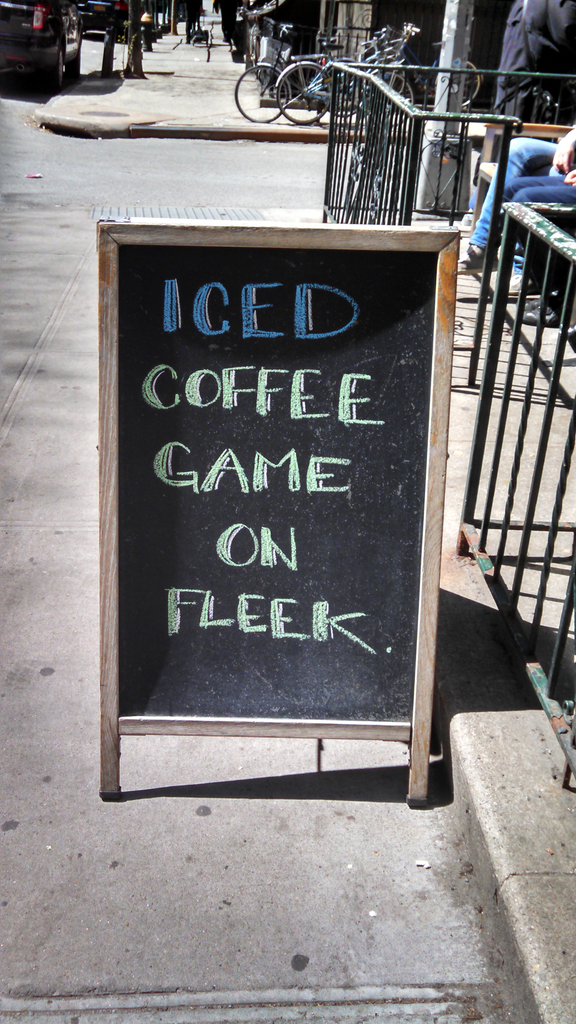 ICED
COFFEE
GAME
ON
FLEEK.